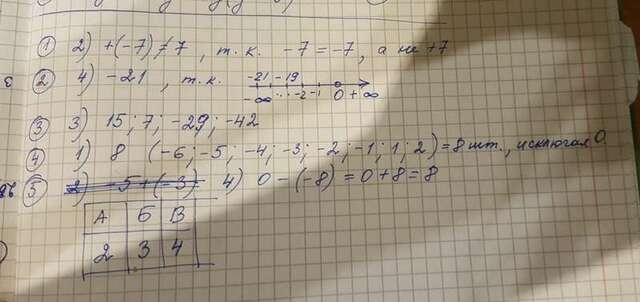 ① 2) +(-7) ≠ 7, т.к. -7 = -7, а не +7
② 4) -21, т.к. -21 -19
-∞ ... -2 -1 0 +∞
③ 3) 15; 7; -29; -42
④ 1) 8 (-6; -5; -4; -3; -2; -1; 1; 2) = 8 шт., исключая 0.
⑤ 2) -5+(-3) 4) 0-(-8) = 0+8 = 8
А Б В
2 3 4